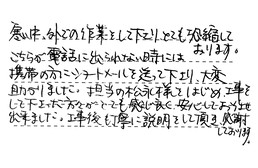 寒い中、外での作業をして下さり、とても恐縮して
おります。
こちらが電話に出られない時には
携帯の方にショートメールを送って下さり、大変
助かりました。担当の松永様をはじめ、工事を
して下さった方々がとても感じ良く、安心しておまかせ
出来ました。工事後も丁寧に説明をして頂き、感謝
しております。